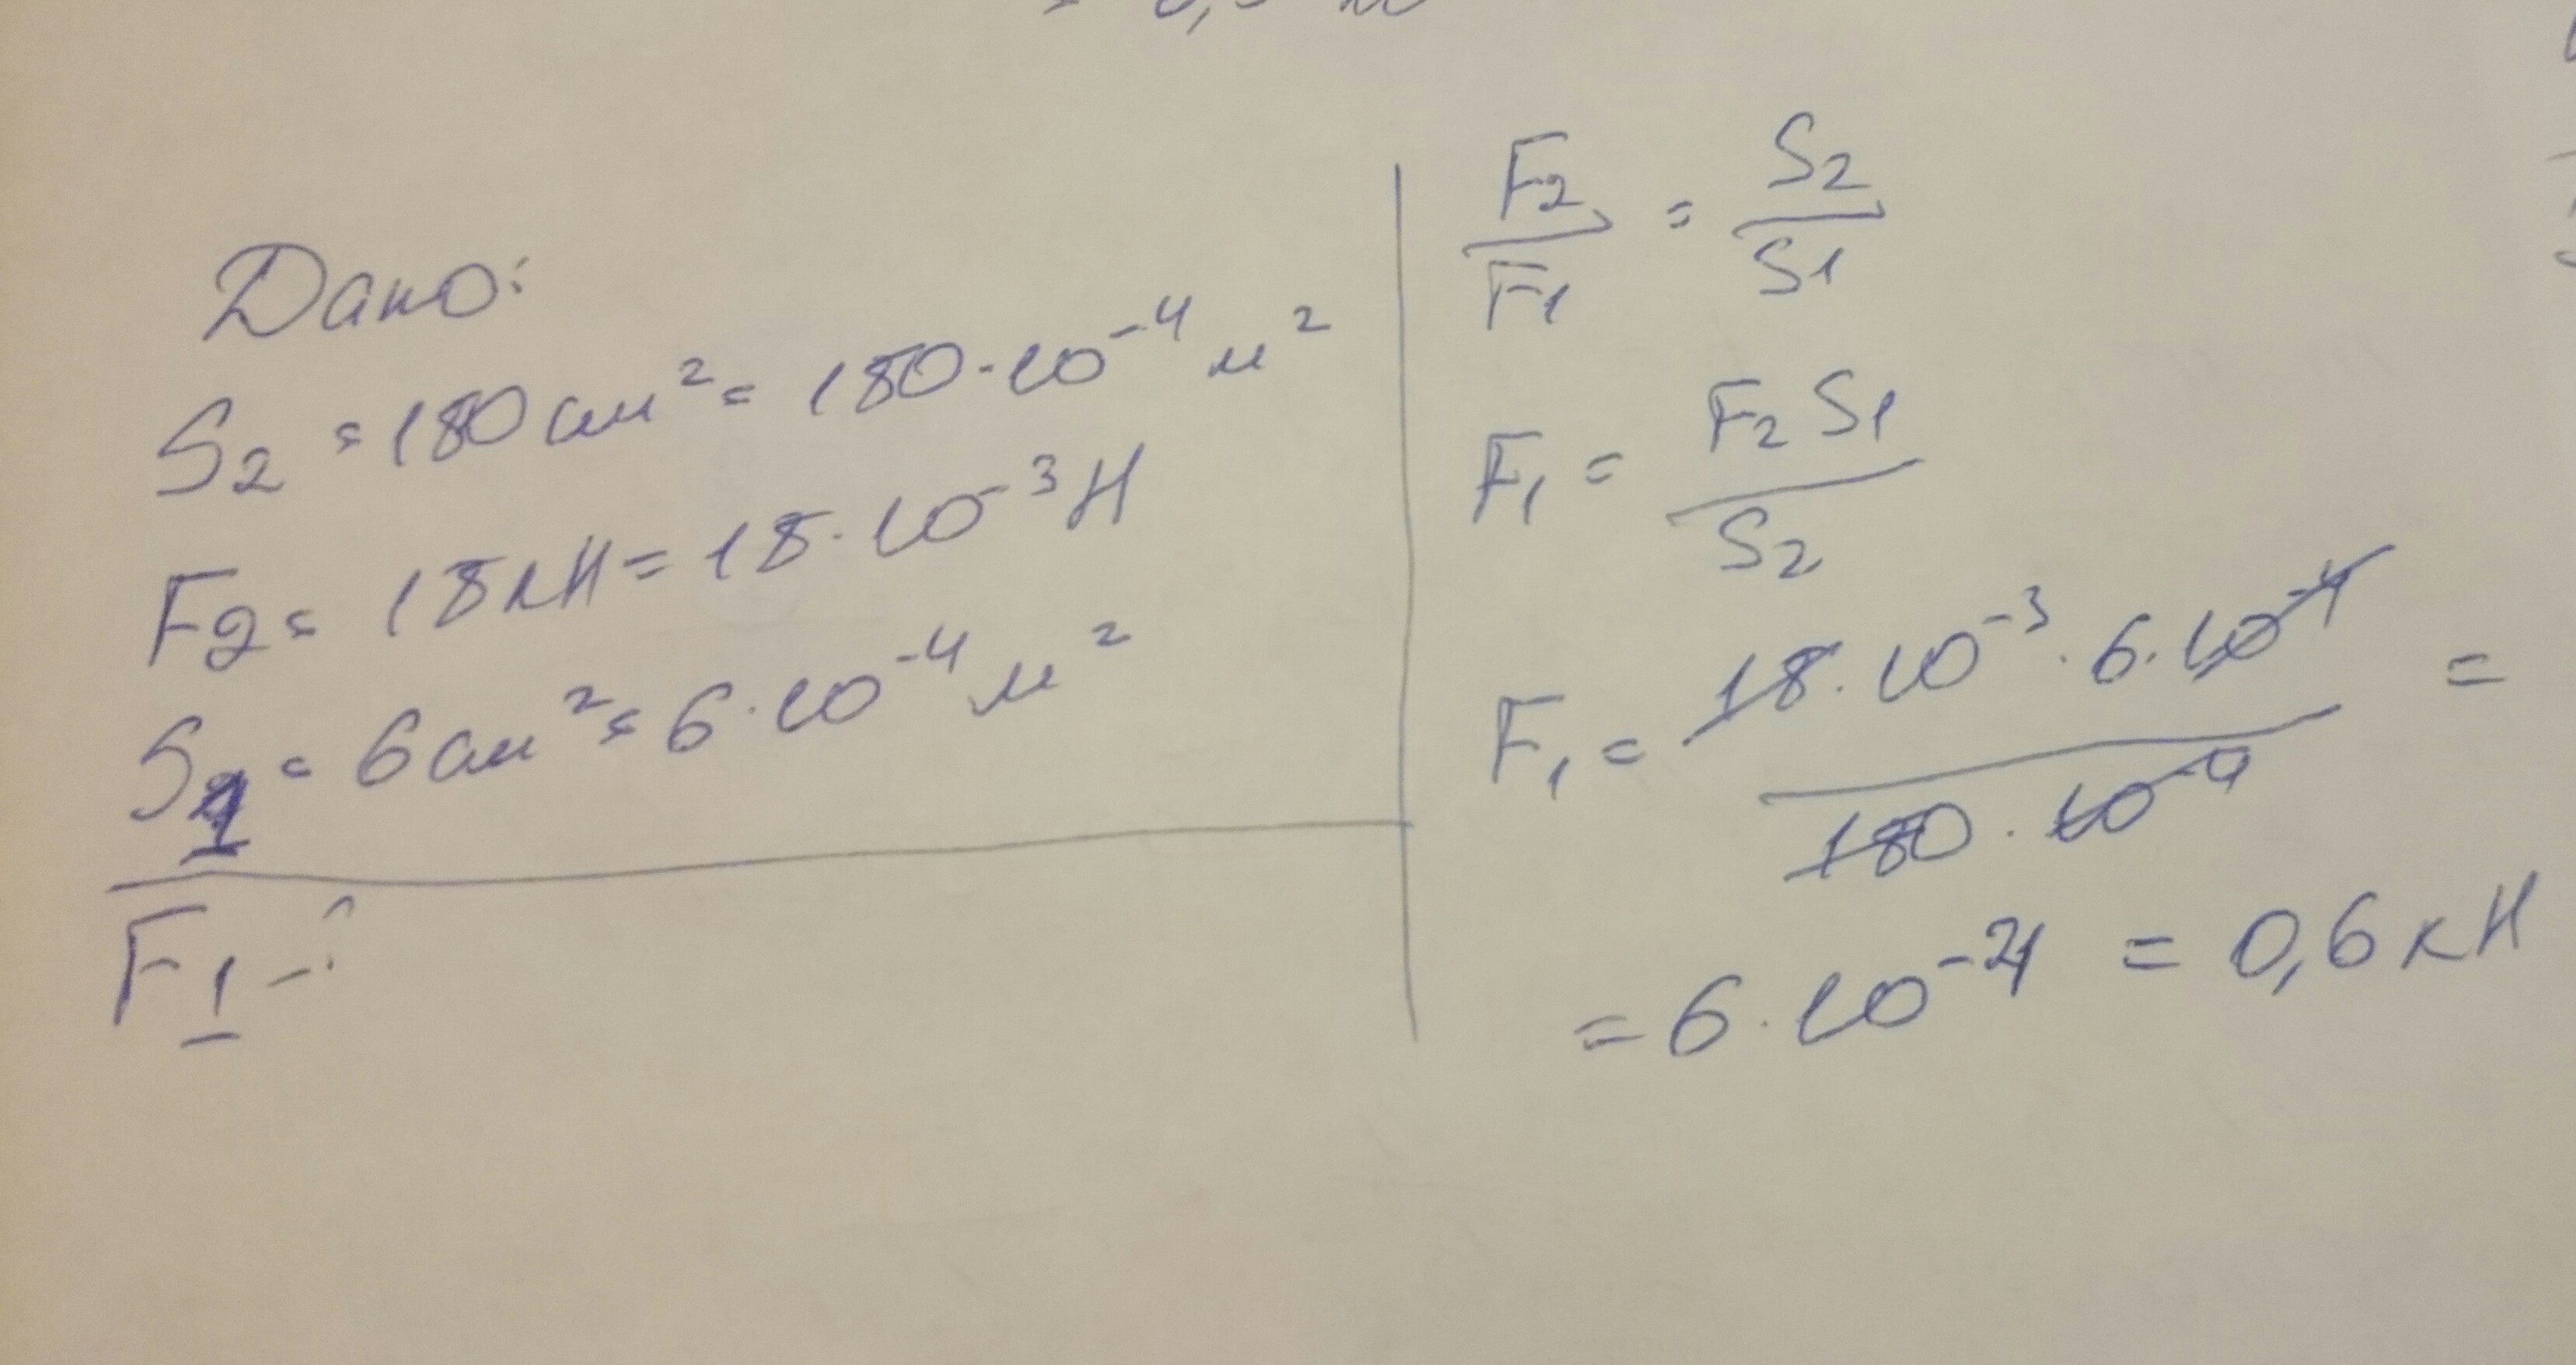 Дано:
S₂ = 180 см² = 180·10⁻⁴ м²
F₂ = 18 кН = 18·10⁻³ Н
S₁ = 6 см² = 6·10⁻⁴ м²
F₁ - ?
F₂/F₁ = S₂/S₁
F₁ = F₂ S₁ / S₂
F₁ = 18·10⁻³·6·10⁻⁴ / 180·10⁻⁴ =
= 6·10⁻⁴ = 0,6 кН